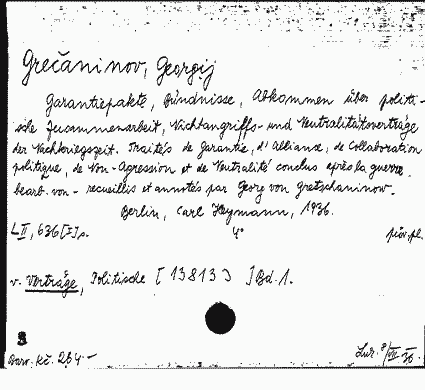 Grečaninov, Georgij
Garantiepakte, Bündnisse, Abkommen über politi-
sche Zusammenarbeit, Nichtangriffs- und Neutralitätsverträge
der Nachkriegszeit. Traités de Garantie, d'Alliance, de Collaboration
politique, de Non-Agression et de Neutralité conclus après la guerre.
bearb. von - recueillis et annotés par Georg von Gretschaninow.
Berlin, Carl Heymann, 1936.
LII, 636 [I] s. 4°
v. Verträge, Politische [13813] Bd. 1.
Darv. Kč. 264-